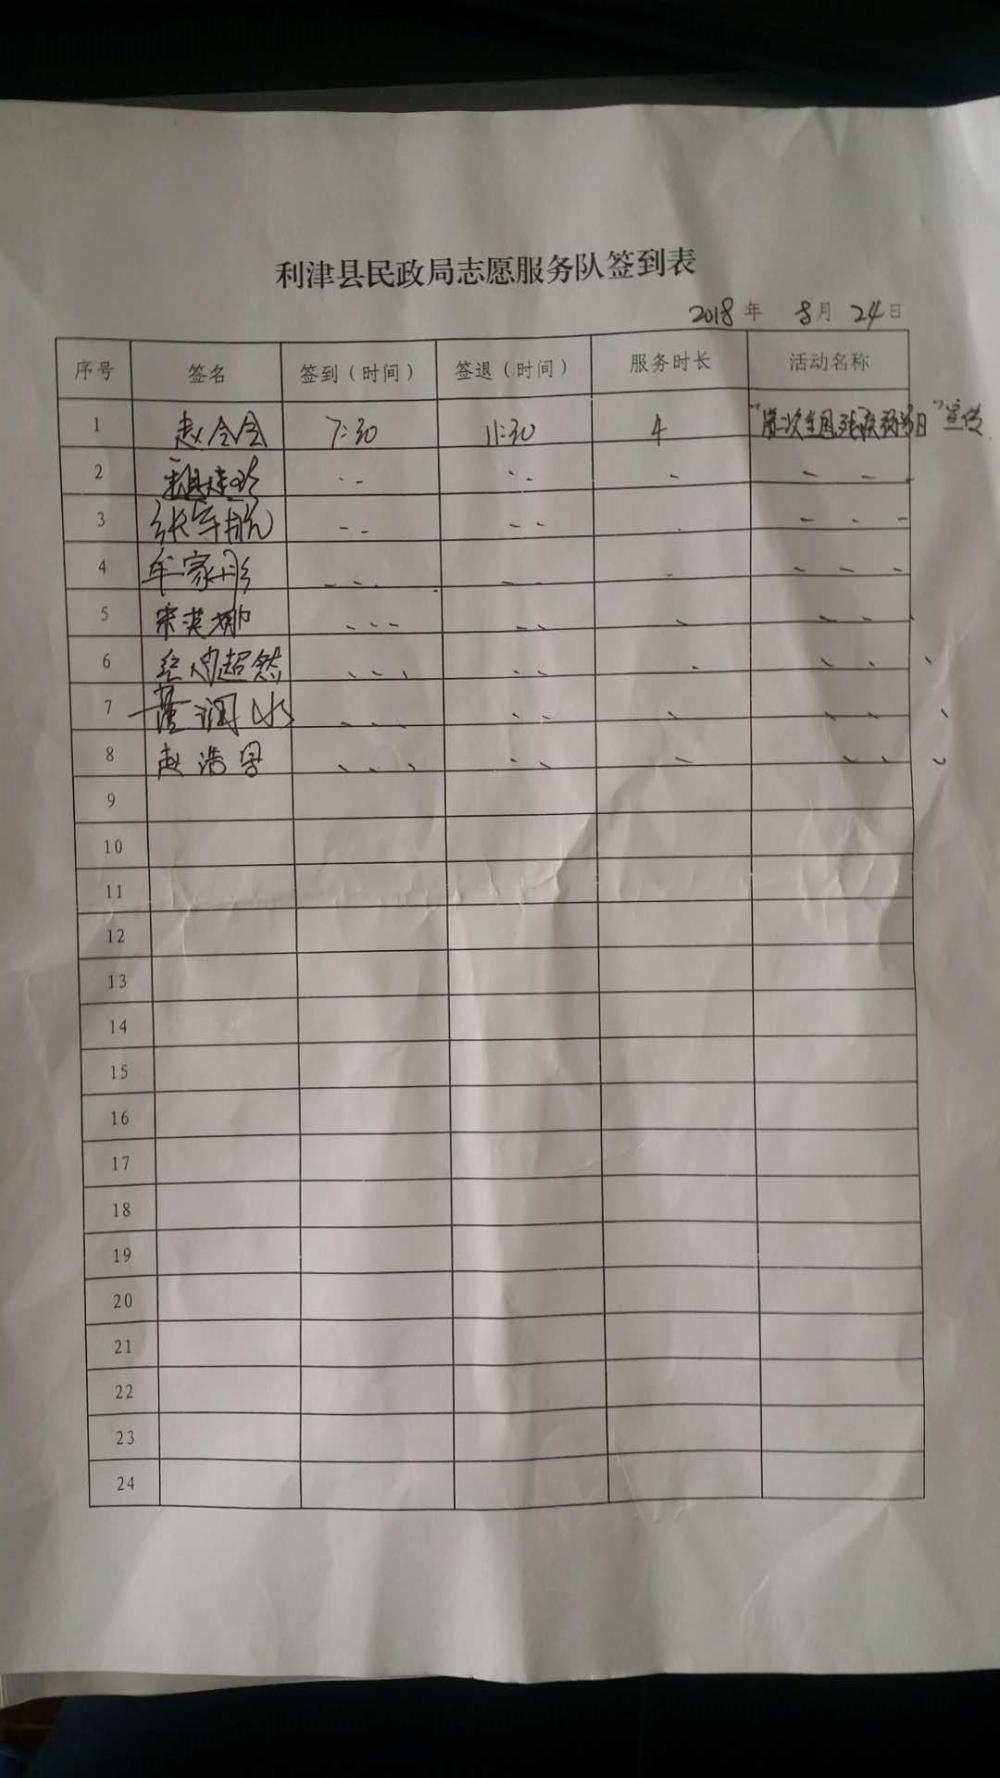 利津县民政局志愿服务队签到表
2018年 8月 24日
序号 签名 签到（时间） 签退（时间） 服务时长 活动名称
1 赵会会 7:30 11:30 4 "第二次全国残疾预防日"宣传
2
3 张军航
4 牟家彤
5 宋英娜
6 超然
7 董润
8 赵浩男
9
10
11
12
13
14
15
16
17
18
19
20
21
22
23
24